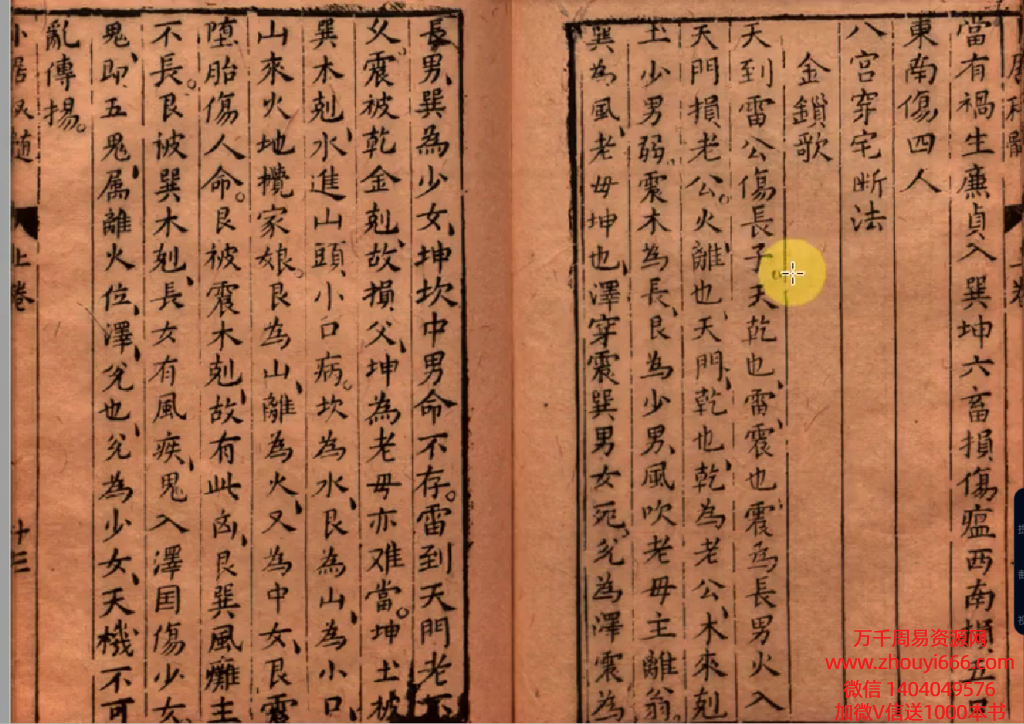 上卷
當有禍生廉貞入巽坤六畜損傷瘟西南損五
東南傷四人
八宮穿宅断法
金鎖歌
天到雷公傷長子、天乾也、雷震也、震為長男火入
天門損老公。火離也、天門、乾也、乾為老公、木來剋
土少男弱。震木為長、艮為少男、風吹老母主離翁。
巽為風、老母坤也、澤穿震巽男女死。兊為澤、震為
長男、巽為少女、坤坎中男命不存。雷到天門老不
父。震被乾金剋、故損父、坤為老母亦难當。坤土被
巽木剋、水進山頭小口病。坎為水、艮為山、為小口
山來火地攪家娘。艮為山、離為火、又為中女、艮震
墮胎傷人命。艮被震木剋、故有此凶、艮巽風癱主
不長。艮被巽木剋、長女有風疾、鬼入澤囯傷少女
鬼、即五鬼属離火位、澤、兊也、兊為少女、天機不可
亂傳揚。
上卷
十三
万千周易资源网
www.zhouyi666.com
微信 1404049576
加微V信送1000本书